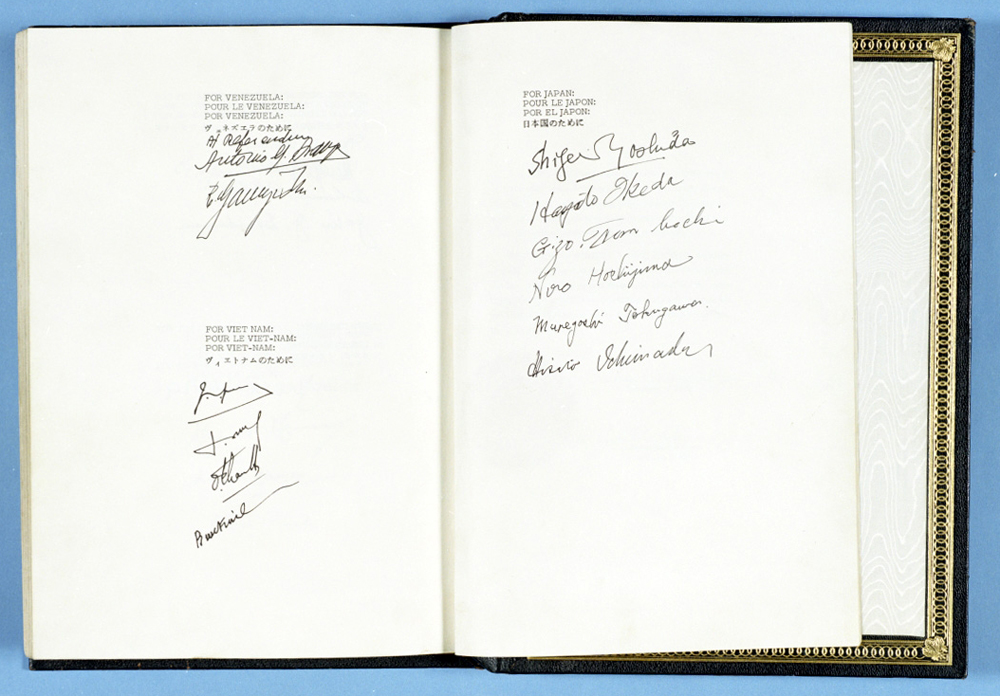 FOR VENEZUELA:
POUR LE VENEZUELA:
POR VENEZUELA:
ヴェネズエラのために
Ad Referendum
Antonio M. Araujo
FOR VIET NAM:
POUR LE VIET-NAM:
POR VIET-NAM:
ヴィエトナムのために
FOR JAPAN:
POUR LE JAPON:
POR EL JAPON:
日本国のために
Shigeru Yoshida
Hayato Ikeda
Gizo Tomabechi
Niro Hoshijima
Muneyoshi Tokugawa
Hisato Ichimada